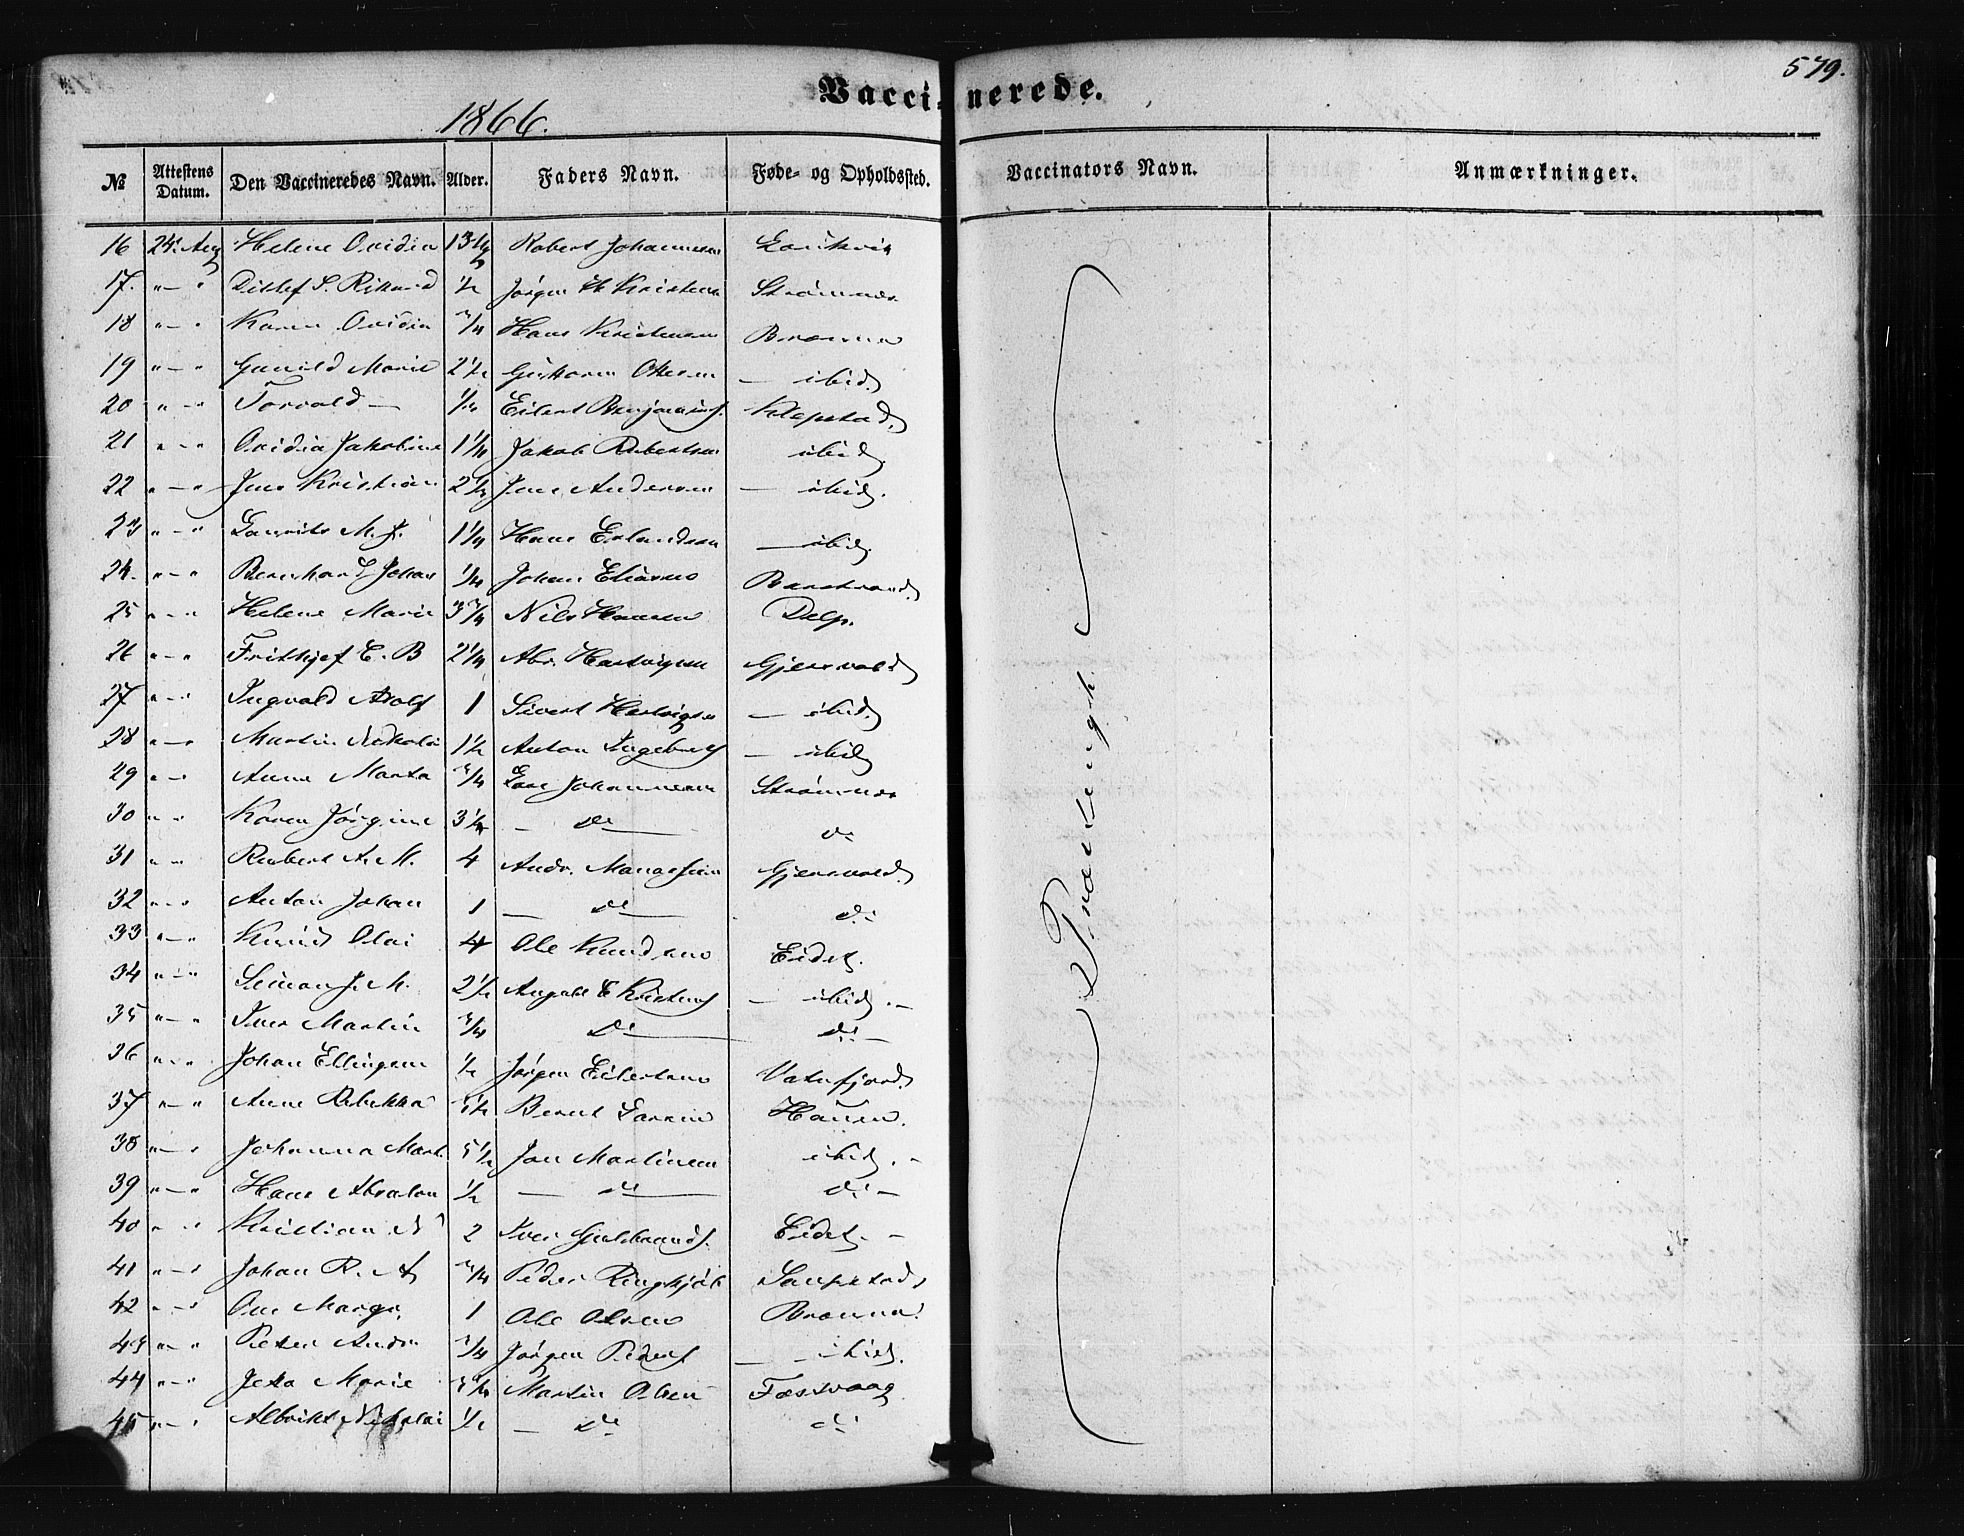 579.
Vaccinerede.
1866.
№ Attestens Datum. Den Vaccineredes Navn. Alder. Faders Navn. Føde- og Opholdssted. Vaccinators Navn. Anmærkninger.
16 24. Aug Helene Ovidia 13 Robert Johannesen
17. " — " Ditlef S. Rikard 1/2 Jørgen Kristens Strømnes
18 " — " Karen Ovidia 3/4 Hans Kristensen Brænna
19 " — " Gunild Marie 2 1/2 Guttorm Ottesen — ibid.
20 " — " Torvald — Eilert Benjamins. Klepstad.
21 " — " Ovidia Jakobine Jakob Robertsen ibid.
22 " — " Jens Kristian Jens Andersen — ibid.
23 " — " Laurits M. J. 1 1/4 Hans Erlandsen — ibid.
24. " — " Bernhard Johan 1/4 Johan Eliasen
25 " — " Helene Marie 3 3/4 Nils Hansen Delp.
26 " — " Frithjof E. B 2 1/4 Abr. Hartvigsen Gjersvold
27 " — " Ingvald Adolf 1 Sivert Hartvigsen — ibid.
28 " — " Martin Nikolai 1 1/2 Anton Ingebrigts — ibid
29 " — " Anne Marta 3/4 Lars Johannesen Strømnes
30 " — " Karen Jørgine 3 1/2 — do — do
31 " — " Robert A. M. 4 Andr. Manassesen Gjersvold.
32 " — " Anton Johan 1 — do — do
33 " — " Knud Olai 4 Ole Knudsen Eidet.
34 " — " Simon J. M. 2 1/2 Angel E Kristens — ibid. —
35 " — " Iver Martin 3/4 do — do —
36 " — " Johan Ellingsen 1/2 Jørgen Eilertsen Vatnfjord.
37 " — " Anne Rebekka Bernt Larsen Hauen.
38 " — " Johanna Mart. 5 1/2 Jon Martinsen ibid. —
39 " — " Hans Absalon 1/2 — do — do —
40 " — " Kristian N 2 Iver Gulbrands. Eidet. —
41 " — " Johan R. A 3/4 Peder Ringkjøb Laupstad
42 " — " Ane Margr. 1 Ole Olsen Brænna
43 " — " Peter Andr. 3/4 Jørgen Peders — ibid.
44 " — " Jeta Marie Martin Olsen Festvaag
45 " — " Albrikt Nikolai 1/2 — do do